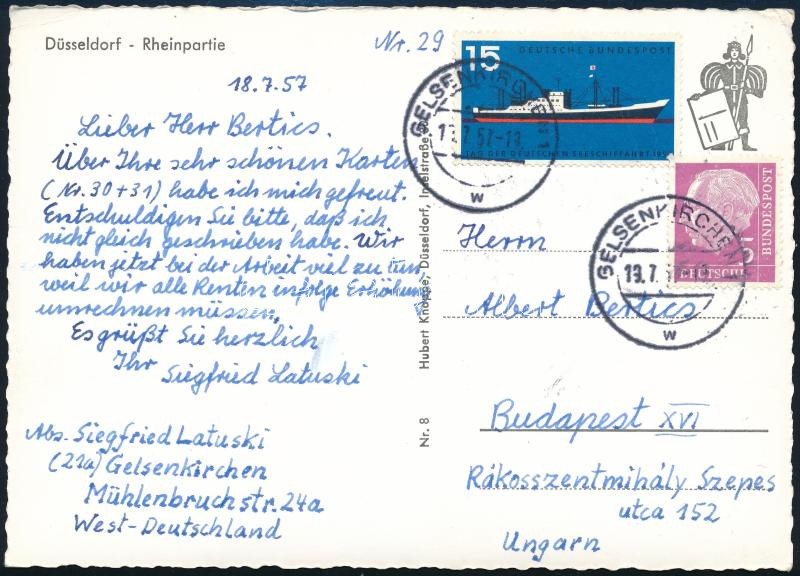 Düsseldorf - Rheinpartie
Nr. 29
18.7.57
Lieber Herr Bertics.
Über Ihre sehr schönen Karten
(Nr. 30+31) habe ich mich gefreut.
Entschuldigen Sie bitte, daß ich
nicht gleich geschrieben habe. Wir
haben jetzt bei der Arbeit viel zu tun
weil wir alle Renten infolge Erhöhung
umrechnen müssen.
Es grüßt Sie herzlich
Ihr Siegfried Latuski
Abs. Siegfried Latuski
(21a) Gelsenkirchen
Mühlenbruchstr. 24a
West-Deutschland
Nr. 8
Hubert Knoppe, Düsseldorf, Inselstraße
15
DEUTSCHE BUNDESPOST
TAG DER DEUTSCHEN SEESCHIFFAHRT 195
GELSENKIRCHEN 1
7.57-1
w
BUNDESPOST
DEUTSCHE
GELSENKIRCHEN
19.7.
w
Herrn
Albert Bertics
Budapest XVI
Rákosszentmihály Szepes
utca 152
Ungarn